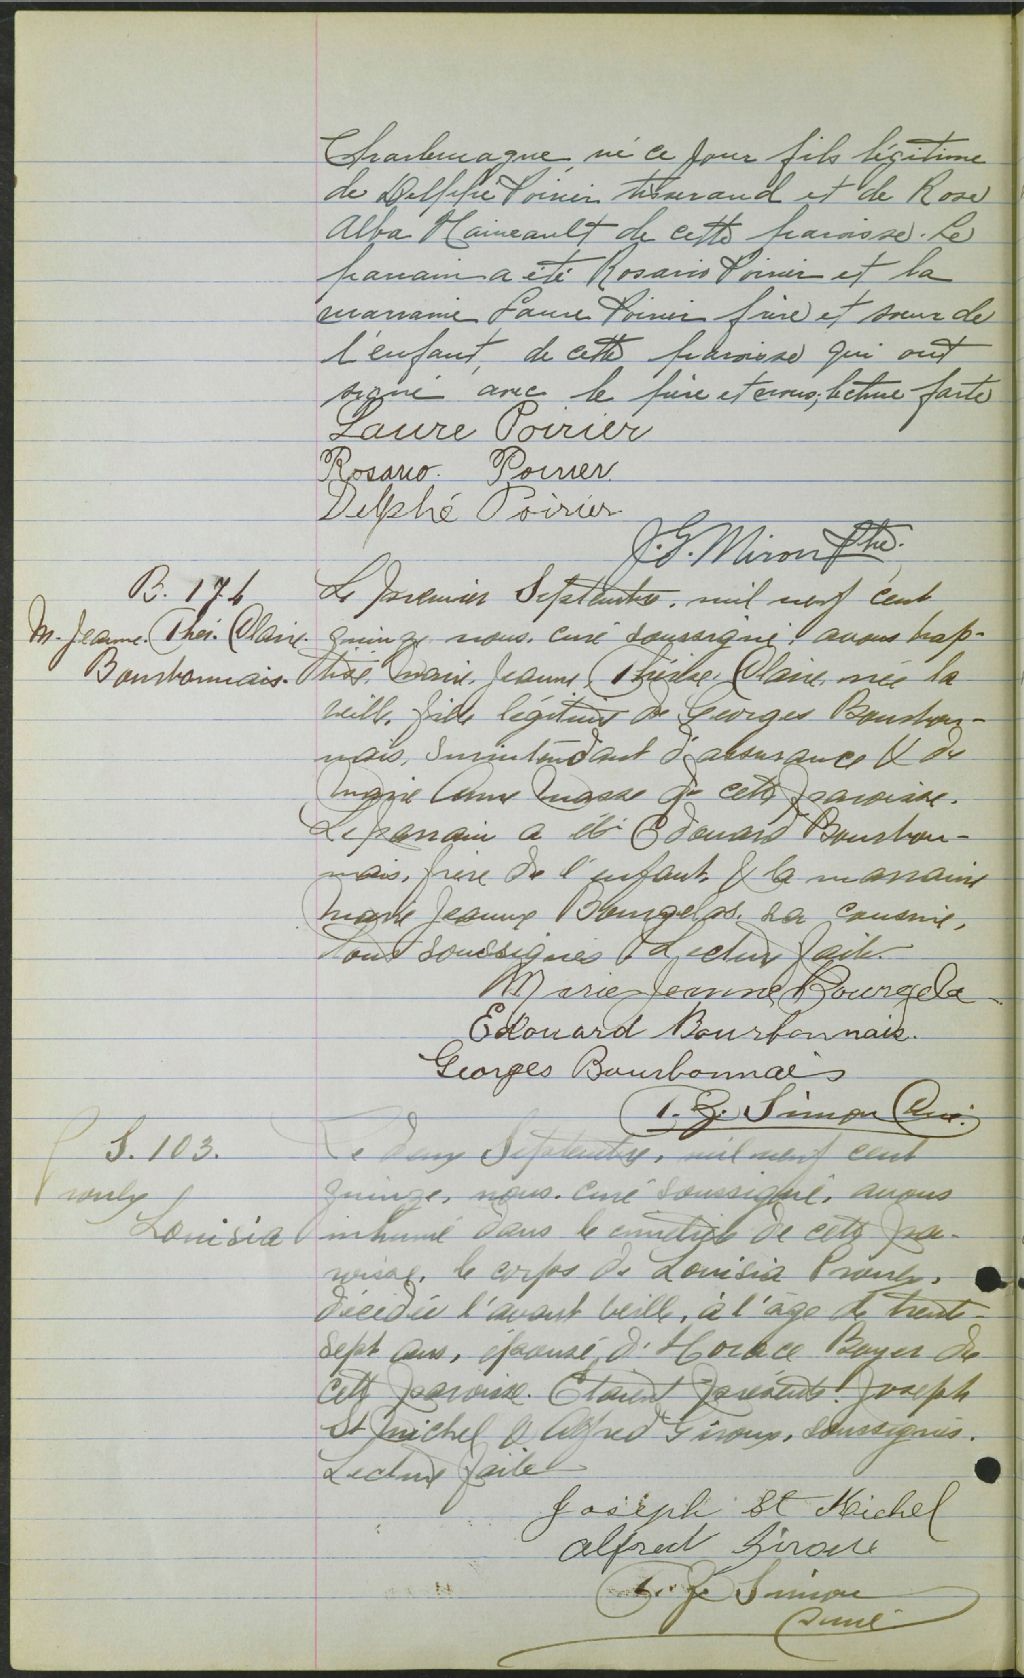 Charlemagne né ce jour fils légitime
de Delphé Poirier tisserand et de Rose
Alba Maineault de cette paroisse. Le
parrain a été Rosario Poirier et la
marraine Laure Poirier frère et soeur de
l'enfant, de cette paroisse qui ont
signé avec le père et nous, lecture faite
Laure Poirier
Rosario. Poirier.
Delphé Poirier
J. G. Miron Ptre.
B. 174
M. Jeanne. Thér. Claire.
Bourbonnais.
Le premier Septembre, mil neuf cent
quinze nous, curé soussigné avons bap-
tisé, Marie, Jeanne, Thérèse, Claire, née la
veille, fille légitime de Georges Bourbon-
nais, Surintendant d'assurance & de
Marie Anne Masse de cette paroisse.
Le parrain a été Edouard Bourbon-
nais, frère de l'enfant, & la marraine
Marie Jeanne Bourgelas, sa cousine,
tous soussignés. Lecture faite.
Marie Jeanne Bourgela
Edouard Bourbonnais.
Georges Bourbonnais
Simon Curé.
S. 103.
Proulx
Louisia
Le deux Septembre, mil neuf cent
quinze, nous, curé soussigné, avons
inhumé dans le cimetière de cette pa-
roisse, le corps de Louisia Proulx,
décédée l'avant veille, à l'âge de trente-
sept ans, épouse d'Horace Boyer de
cette paroisse. Etaient présents: Joseph
St Michel & Alfred Giroux, soussignés.
Lecture faite
Joseph St Michel
Alfred Giroux
Simon
Curé